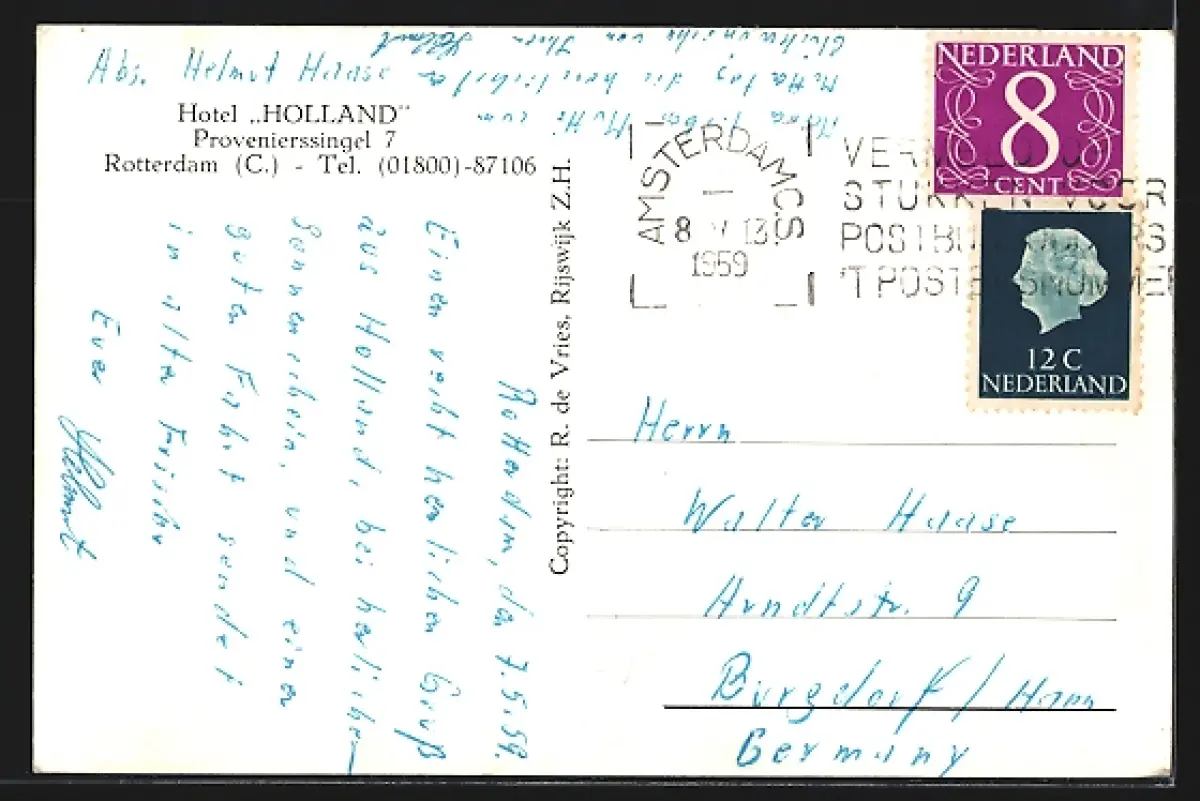 Abs. Helmut Haase
Hotel „HOLLAND"
Provenierssingel 7
Rotterdam (C.) - Tel. (01800)-87106
Rotterdam, den 7.5.59.
Einen recht herzlichen Gruß
aus Holland, bei herrliche-
Sonnenschein, und einer
guten Fahrt sendet
in alter Frische
Euer
Helmut
Mutti zum
Muttertag die herzlichsten
Glückwünsche von Ihrem Helmut
Copyright: R. de Vries, Rijswijk Z.H.
AMSTERDAM C.S.
8 V 13
1959
STUKKEN VOOR
'T POST
NEDERLAND
8
CENT
12 C
NEDERLAND
Herrn
Walter Haase
Arndtstr. 9
Burgdorf / Hann
Germany